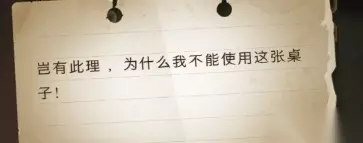 岂有此理，为什么我不能使用这张桌
子！